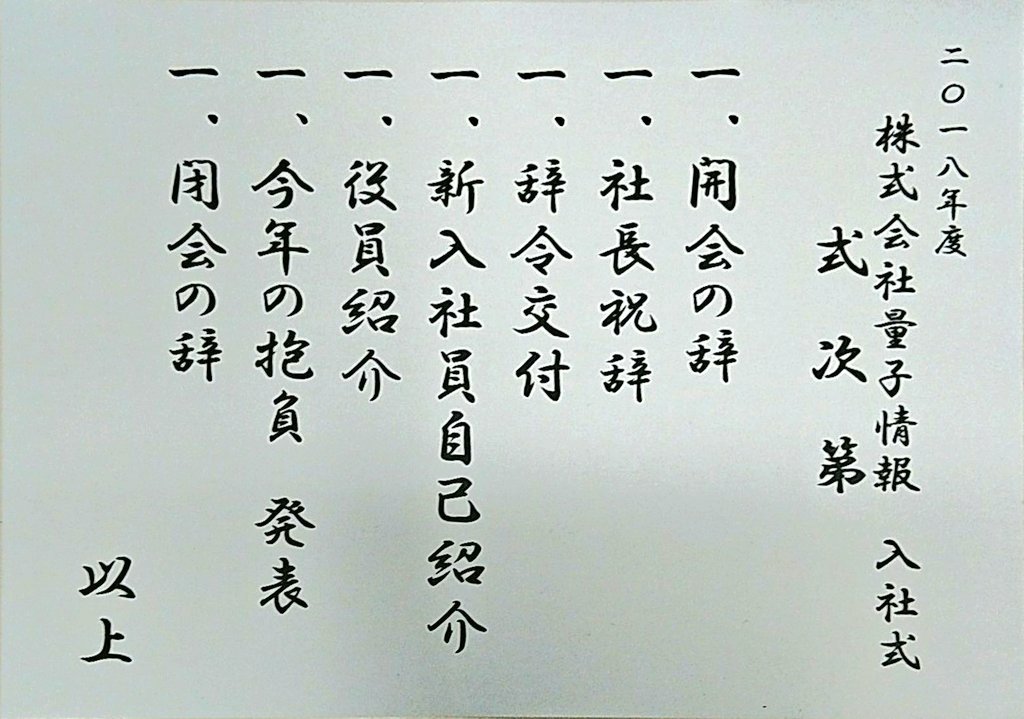 二〇一八年度
株式会社量子情報　入社式
式次第
一、開会の辞
一、社長祝辞
一、辞令交付
一、新入社員自己紹介
一、役員紹介
一、今年の抱負　発表
一、閉会の辞
以上